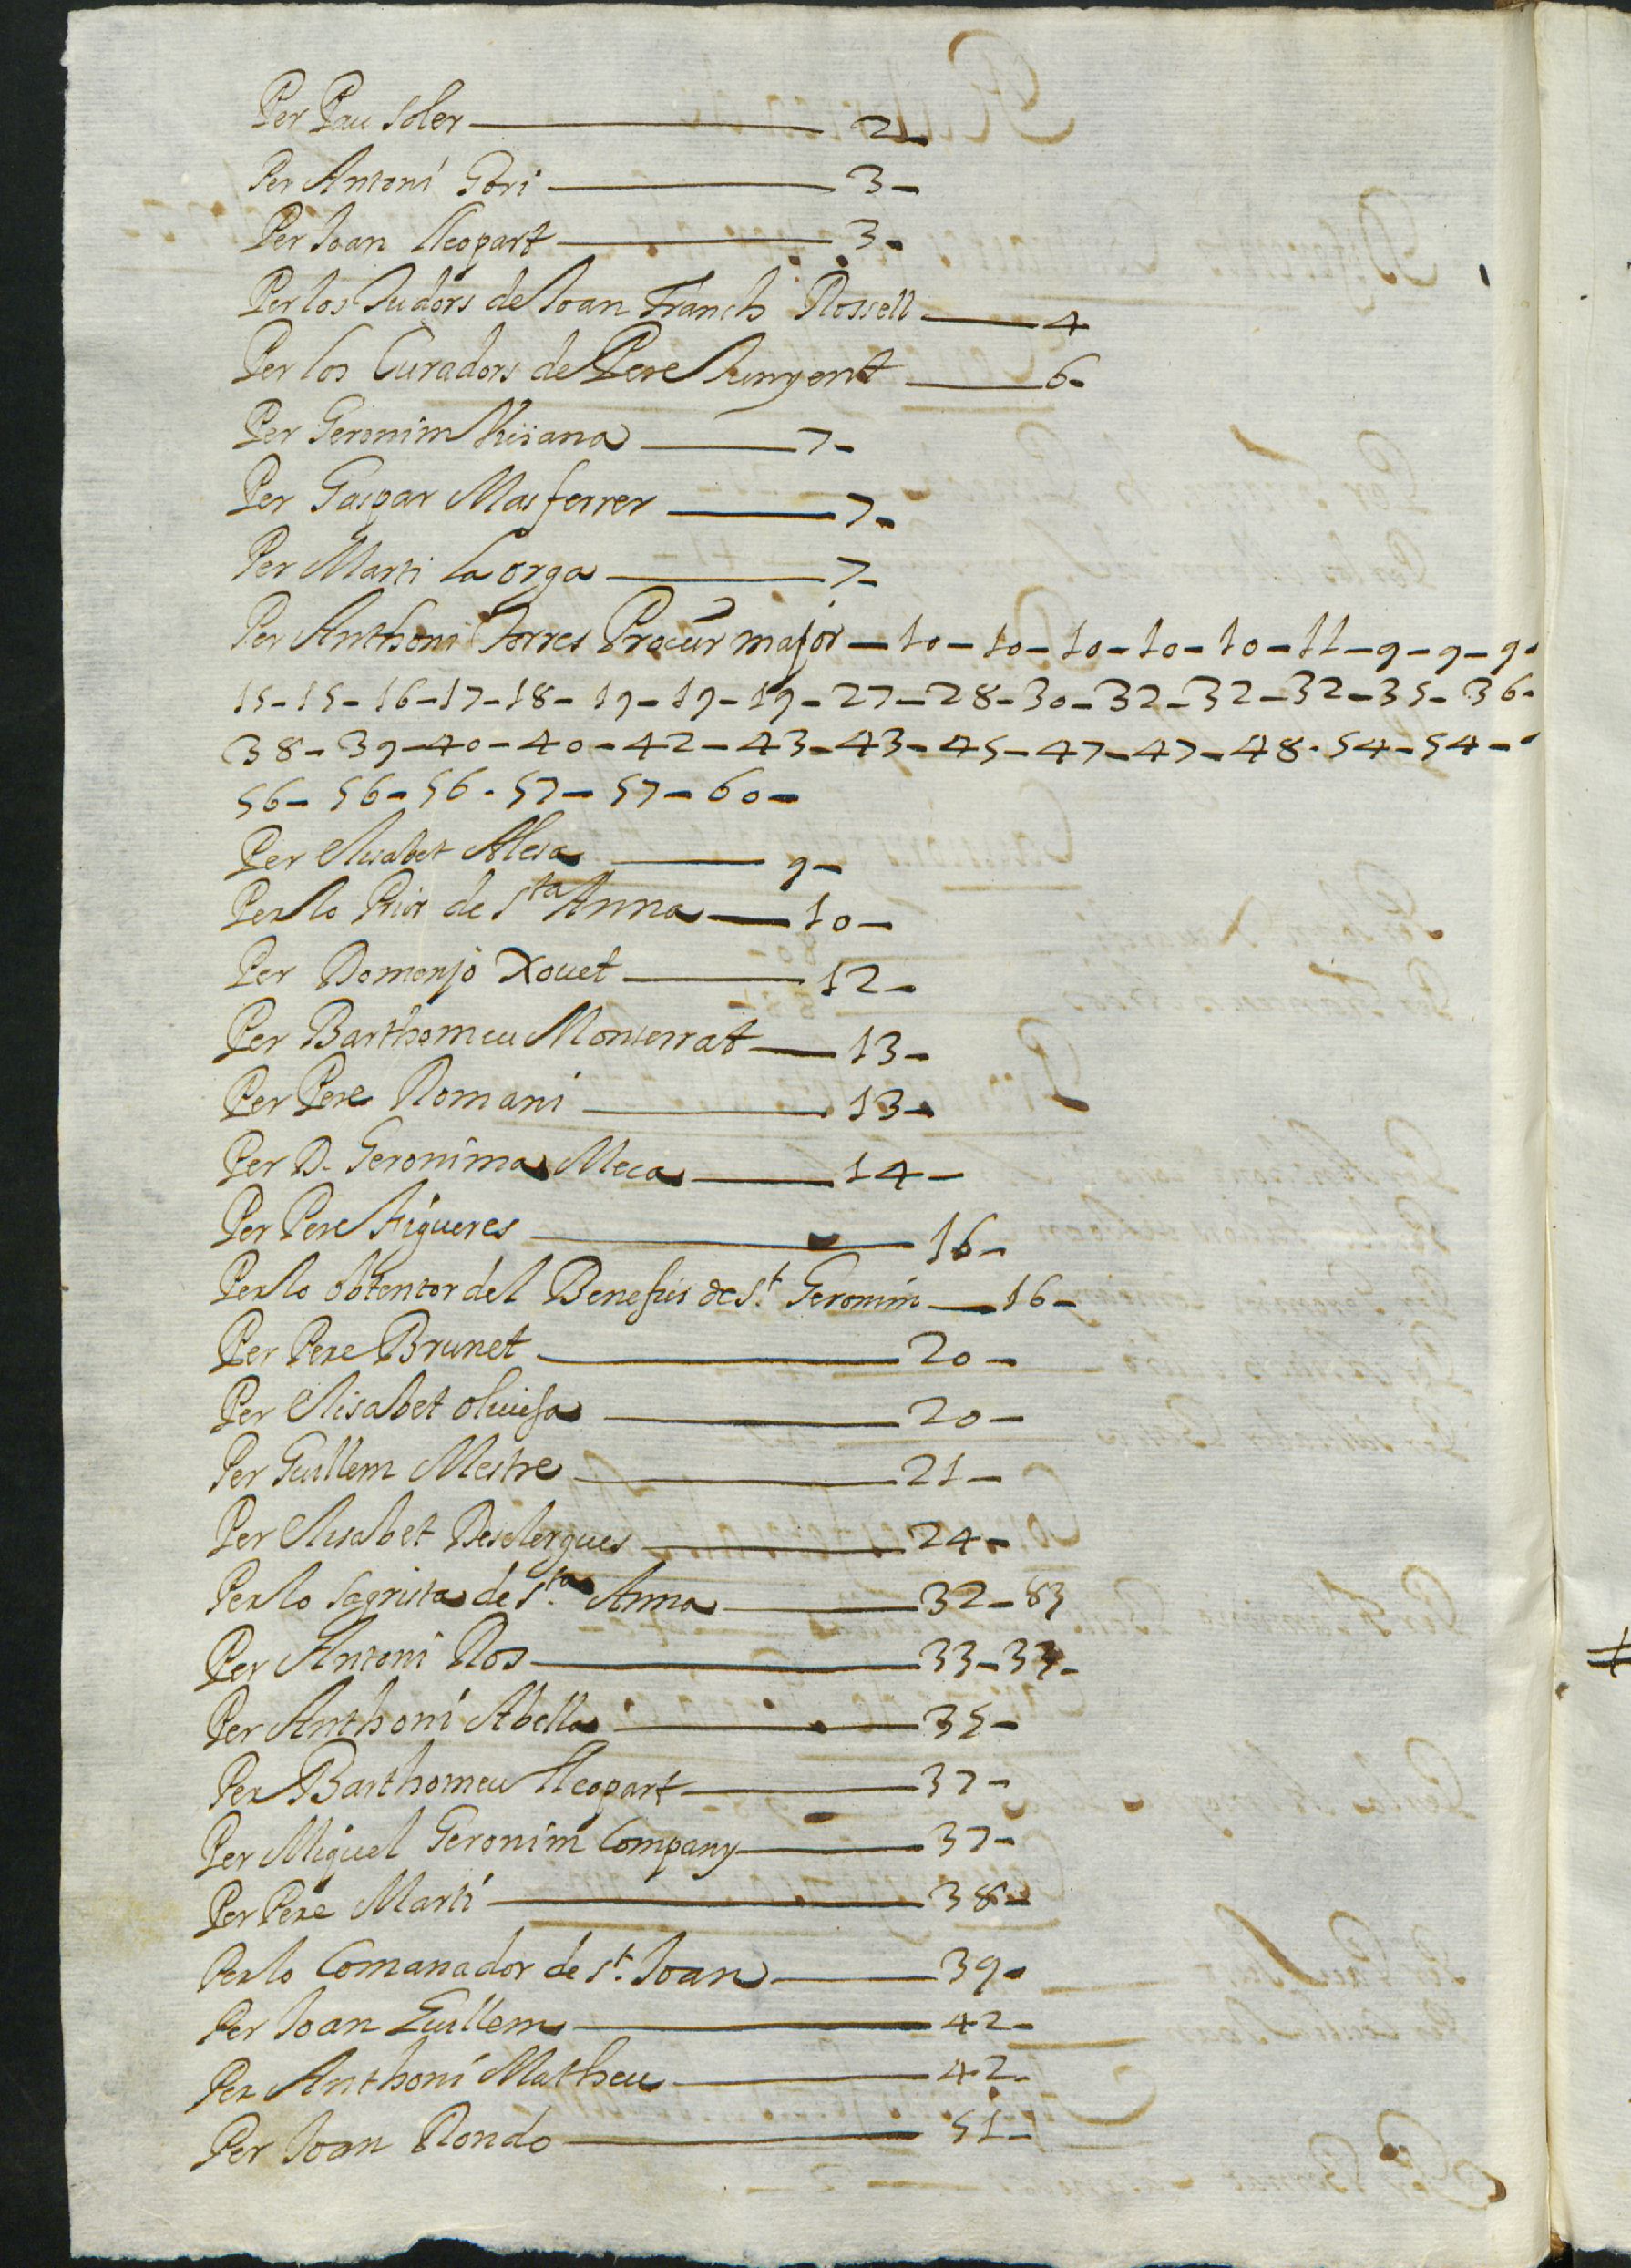 Per Pau Soler — 2-
Per Antoni Gori — 3-
Per Joan Lleopart — 3-
Per los Tudors de Joan Franch Rossell — 4
Per los Curadors de Pere Junyent — 6-
Per Geronim — 7-
Per Gaspar Masferrer — 7-
Per Marti la orga — 7-
Per Anthoni Torres Procur major - 10 - 10 - 10 - 10 - 10 - 11 - 9 - 9 - 9-
15 - 15 - 16 - 17 - 18 - 19 - 19 - 19 - 27 - 28 - 30 - 32 - 32 - 32 - 35 - 36-
38 - 39 - 40 - 40 - 42 - 43 - 43 - 45 - 47 - 47 - 48 - 54 - 54 -
56 - 56 - 56 - 57 - 57 - 60 -
Per Elisabet Alesa — 9-
Per lo Prior de Sta Anna — 10-
Per Domenjo Xouet — 12-
Per Barthomeu Monserrat — 13-
Per Pere Romani — 13-
Per D. Geronima Meca — 14-
Per Pere Figueres — 16-
Per lo obtentor del Benefici de St. Geronim — 16-
Per Pere Brunet — 20-
Per Elisabet — 20-
Per Guillem Mestre — 21-
Per Elisabet Desclergues — 24-
Per lo Sagrista de Sta. Anna — 32-83
Per Antoni Ros — 33-33-
Per Anthoni Abella — 35-
Per Barthomeu Lleopart — 37-
Per Miquel Geronim Company — 37-
Per Pere Marti — 38-
Per lo Comanador de St. Joan — 39-
Per Joan Guillem — 42-
Per Anthoni Matheu — 42-
Per Joan Rondo — 51-